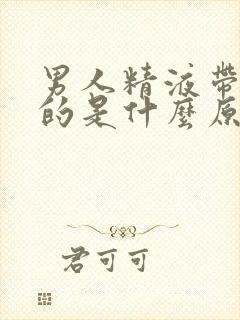 男人精液帶
的是什麼原
君可可